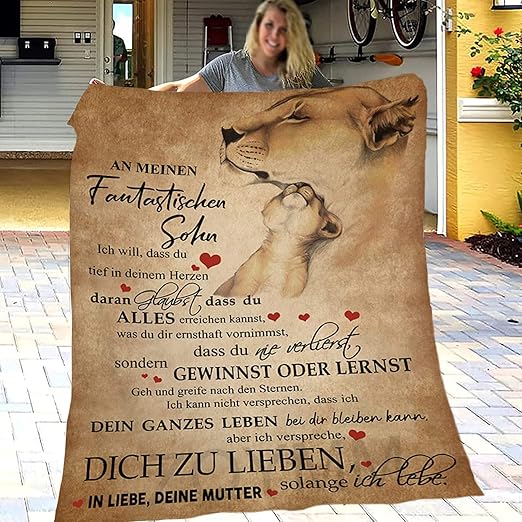 AN MEINEN
Fantastischen
Sohn
Ich will, dass du
tief in deinem Herzen
daran Glaubst dass du
ALLES erreichen kannst,
was du dir ernsthaft vornimmst,
dass du nie verlierst,
sondern GEWINNST ODER LERNST
Geh und greife nach den Sternen.
Ich kann nicht versprechen, dass ich
DEIN GANZES LEBEN bei dir bleiben kann,
aber ich verspreche,
DICH ZU LIEBEN,
solange ich lebe.
IN LIEBE, DEINE MUTTER